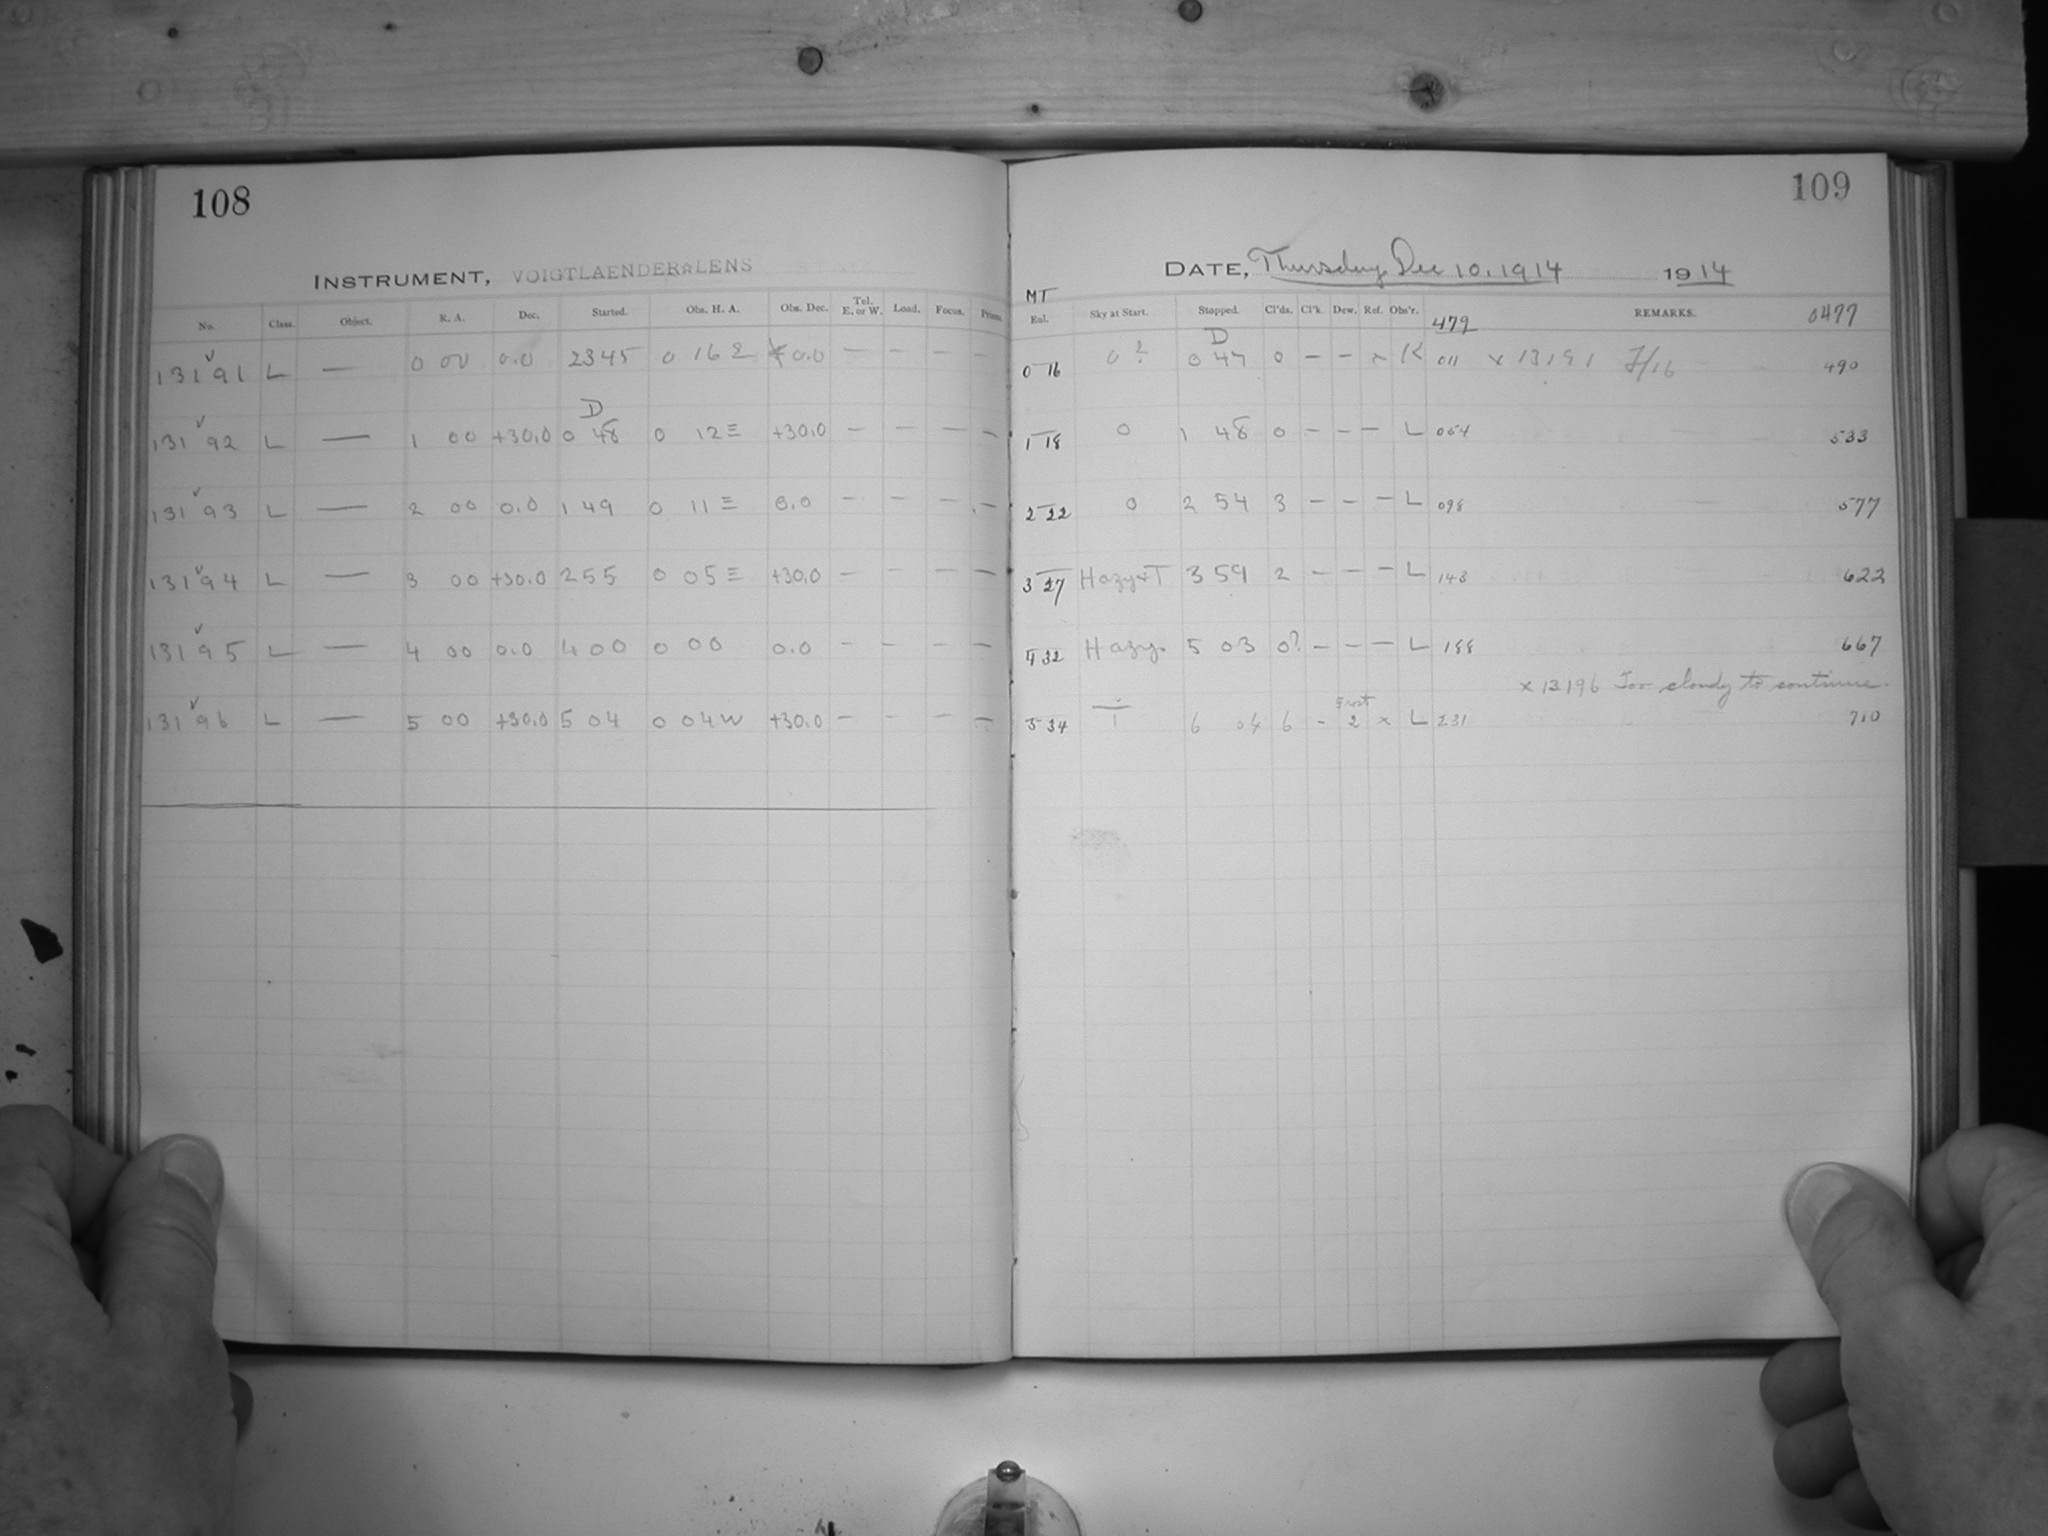 108
INSTRUMENT, VOIGTLAENDER LENS
No. Class. Object. R. A. Dec. Started. Obs. H. A. Obs. Dec. Tel. E. or W. Load. Focus. Prisms.
13191 L — 0 00 0.0 2345 0 16 E 0.0 — — — —
D
13192 L — 1 00 +30.0 0 48 0 12 E +30.0 — — — —
13193 L — 2 00 0.0 1 49 0 11 E 0.0 — — — —
13194 L — 3 00 +30.0 2 55 0 05 E +30.0 — — — —
13195 L — 4 00 0.0 4 00 0 00 0.0 — — — —
13196 L — 5 00 +30.0 5 04 0 04 W +30.0 — — — —
109
DATE, Thursday Dec 10, 1914 1914
MT
Eal. Sky at Start. Stopped. Cl'ds. Cl'k. Dew. Ref. Obs'r. 479 REMARKS. 0477
D
0 16 0? 0 47 0 — — × K 011 × 13191 F/16 490
1 18 0 1 48 0 — — — L 054 533
2 22 0 2 54 3 — — — L 098 577
3 27 Hazy+T 3 59 2 — — — L 143 622
4 32 Hazy 5 03 0? — — — L 188 667
× 13196 Too cloudy to continue.
Frost
5 34 T 6 04 6 - 2 × L 231 710